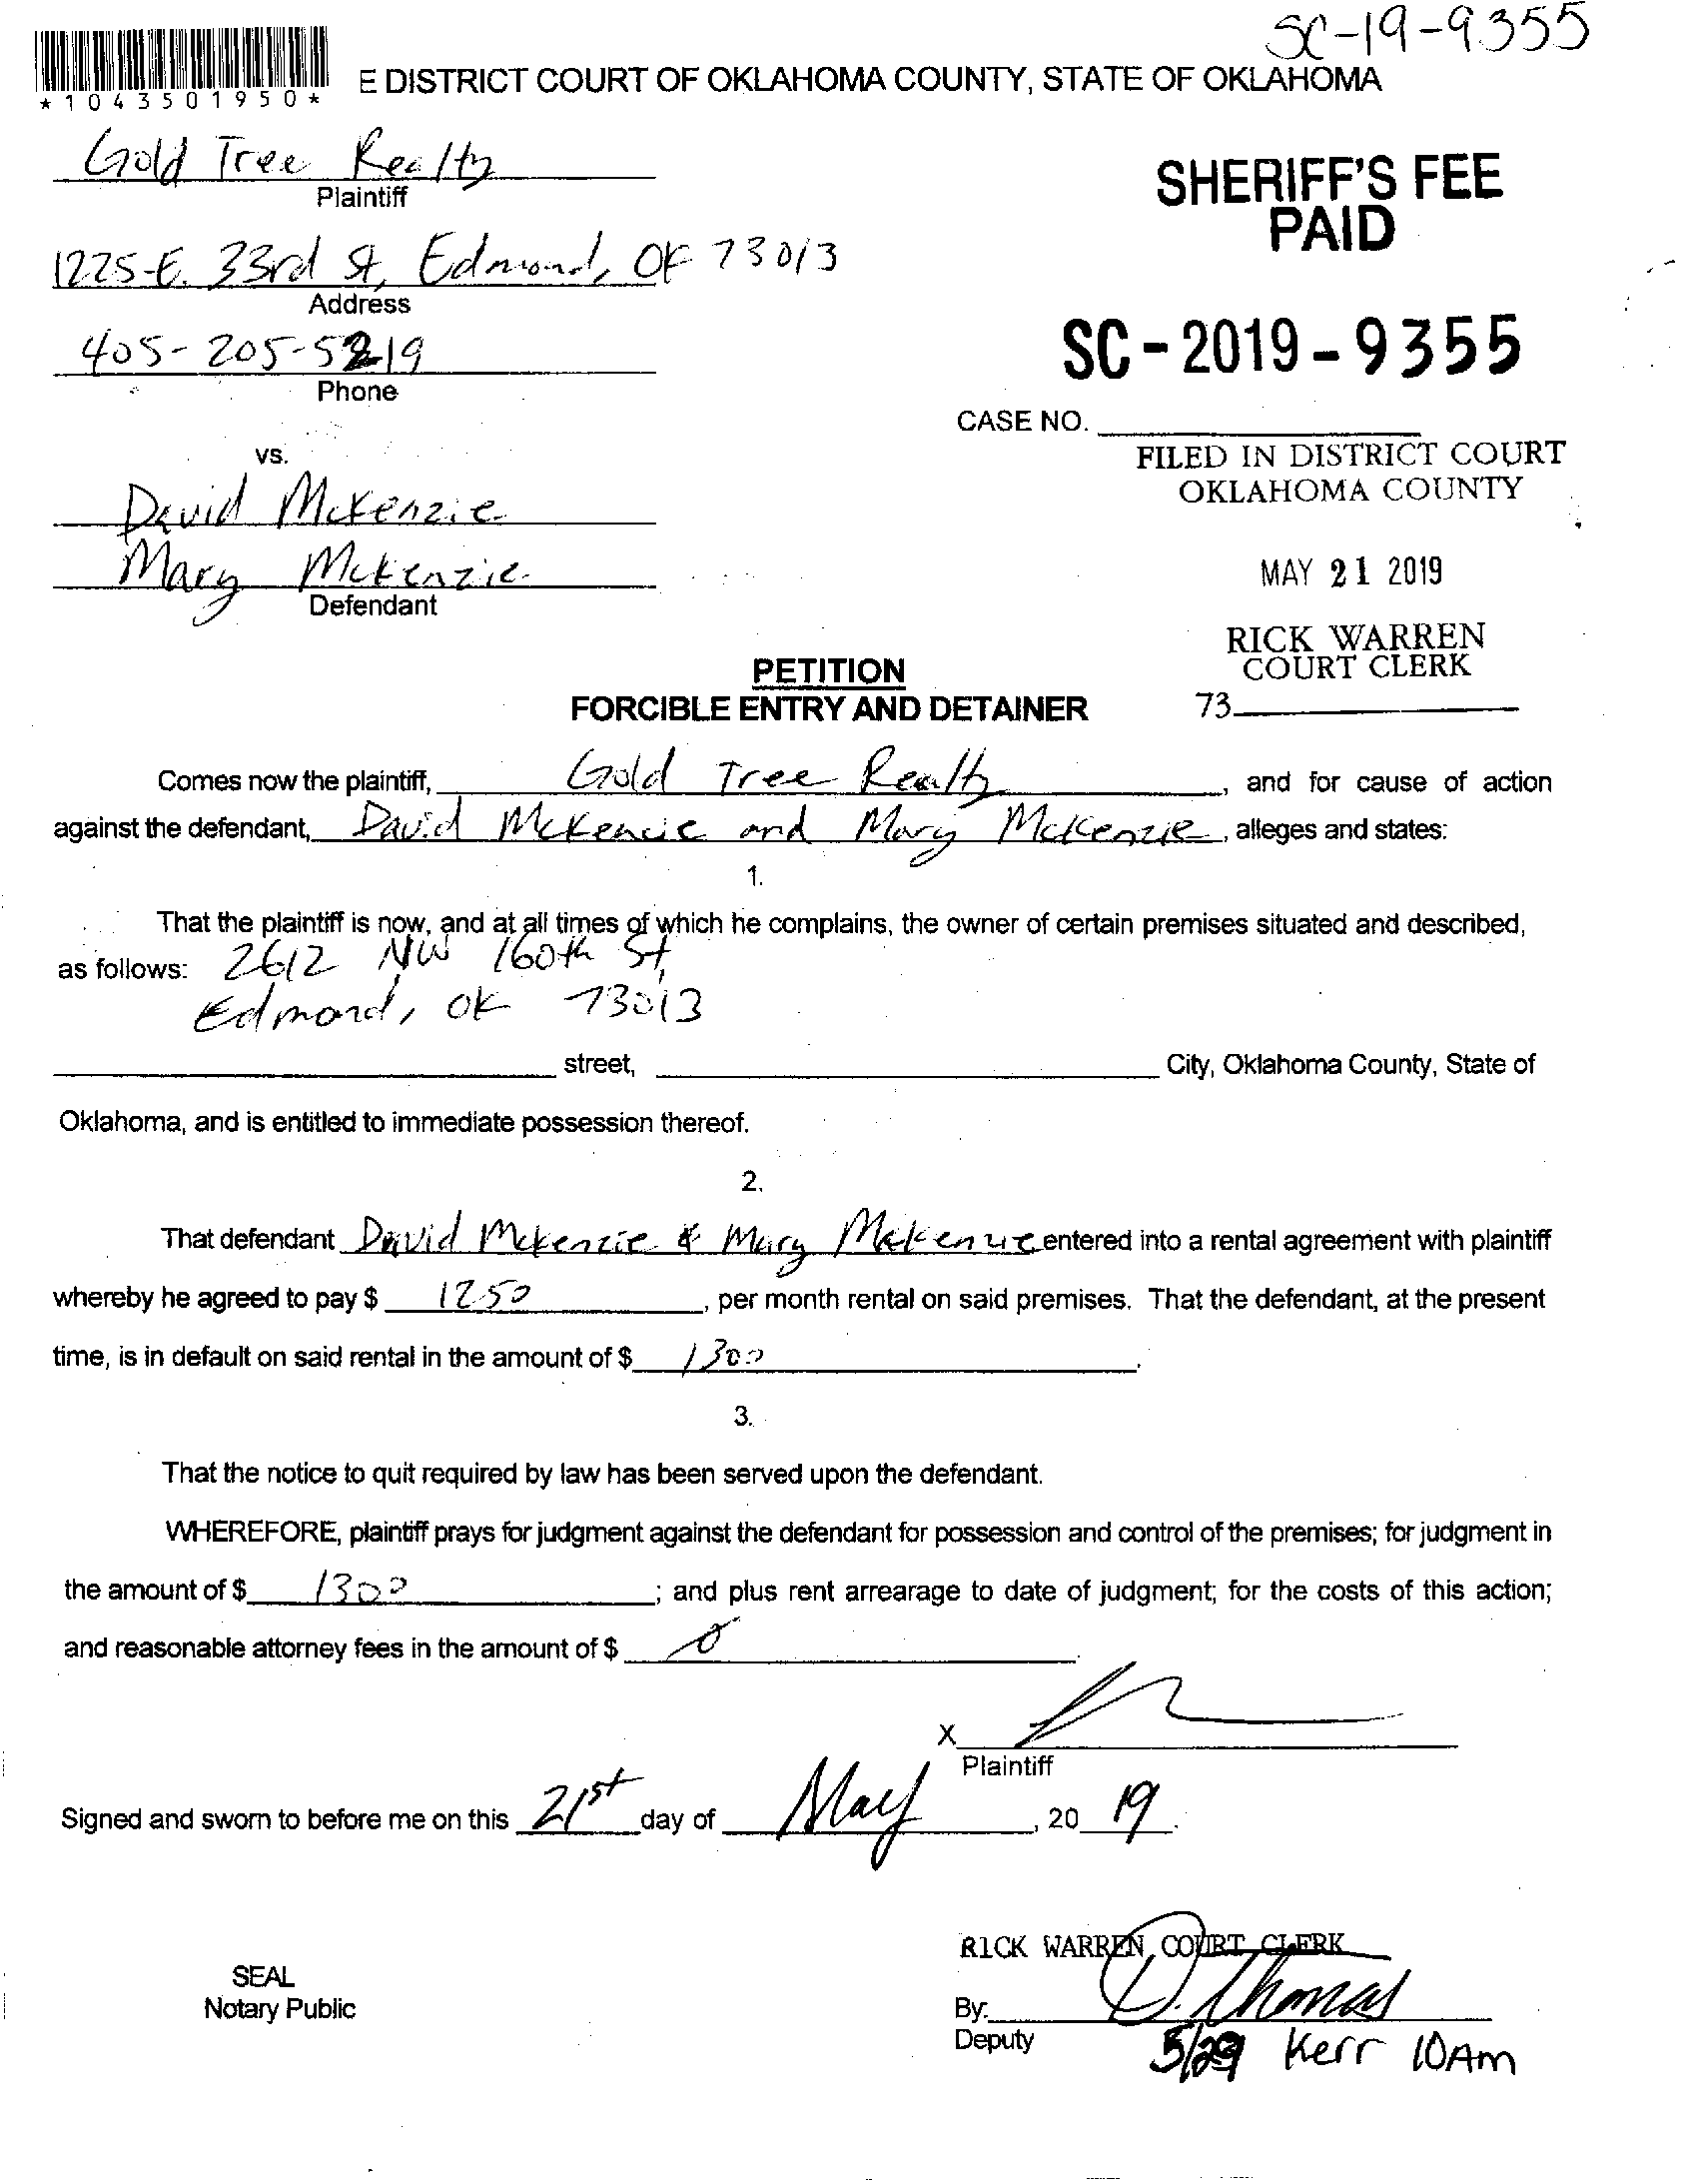 SC-19-9355
*1043501950*
E DISTRICT COURT OF OKLAHOMA COUNTY, STATE OF OKLAHOMA
Gold Tree Realty
Plaintiff
SHERIFF'S FEE
PAID
1225 E. 33rd St, Edmond, OK 73013
Address
405-205-5219
Phone
SC-2019-9355
CASE NO.
vs.
FILED IN DISTRICT COURT
OKLAHOMA COUNTY
David McKenzie
Mary McKenzie
Defendant
MAY 21 2019
RICK WARREN
COURT CLERK
73
PETITION
FORCIBLE ENTRY AND DETAINER
Comes now the plaintiff, Gold Tree Realty, and for cause of action
against the defendant, David McKenzie and Mary McKenzie, alleges and states:
1.
That the plaintiff is now, and at all times of which he complains, the owner of certain premises situated and described,
as follows: 2612 NW 160th St,
Edmond, OK 73013
street, City, Oklahoma County, State of
Oklahoma, and is entitled to immediate possession thereof.
2.
That defendant David McKenzie & Mary McKenzie entered into a rental agreement with plaintiff
whereby he agreed to pay $ 1250, per month rental on said premises. That the defendant, at the present
time, is in default on said rental in the amount of $ 1300.
3.
That the notice to quit required by law has been served upon the defendant.
WHEREFORE, plaintiff prays for judgment against the defendant for possession and control of the premises; for judgment in
the amount of $ 1300; and plus rent arrearage to date of judgment; for the costs of this action;
and reasonable attorney fees in the amount of $ 0.
X
Plaintiff
Signed and sworn to before me on this 21st day of May, 20 19.
RICK WARREN, COURT CLERK
SEAL
Notary Public
By: D. Thomas
Deputy
5/29 Kerr 10AM